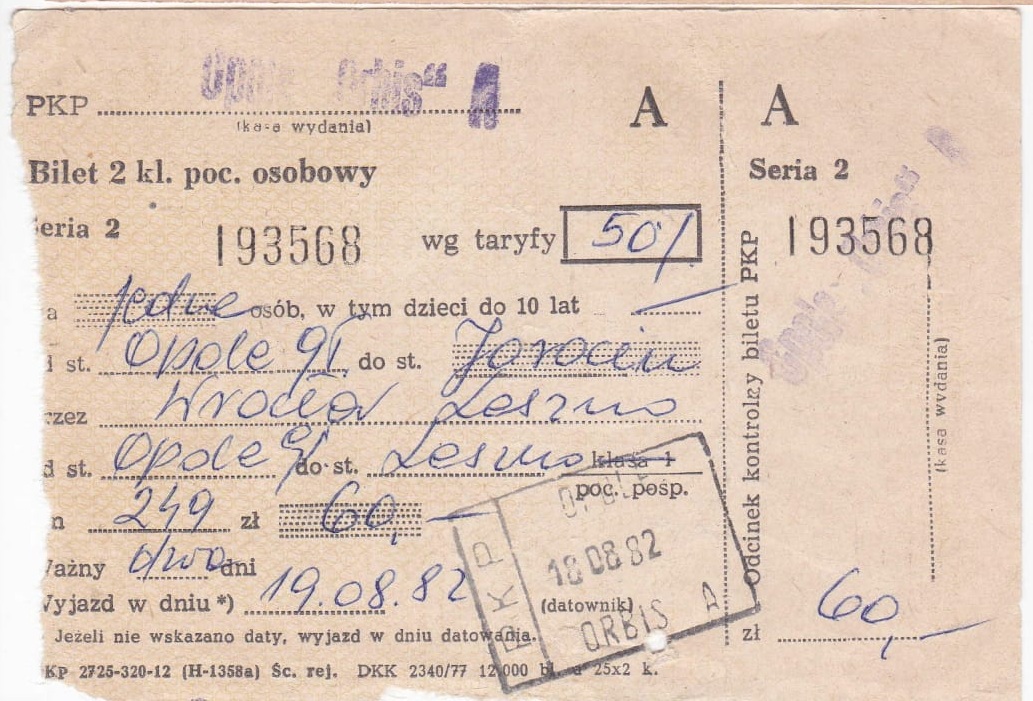 "Orbis" A
PKP
(kasa wydania)
A
Bilet 2 kl. poc. osobowy
eria 2
193568 wg taryfy 50%
a jedne osób, w tym dzieci do 10 lat —
d st. Opole Gł. do st. Jarocin
rzez Wrocław Leszno
d st. Opole Gł do st. Leszno klasa 1
poc. pośp.
m 249 zł 60,—
ażny dwa dni
yjazd w dniu *) 19.08.82
(datownik)
Jeżeli nie wskazano daty, wyjazd w dniu datowania.
KP 2725-320-12 (H-1358a) Śc. rej. DKK 2340/77 12.000 bl. a 25x2 k.
PKP
OPOLE
18 08 82
ORBIS A
A
Seria 2
193568
Odcinek kontrolny biletu PKP
(kasa wydania)
zł 60,—